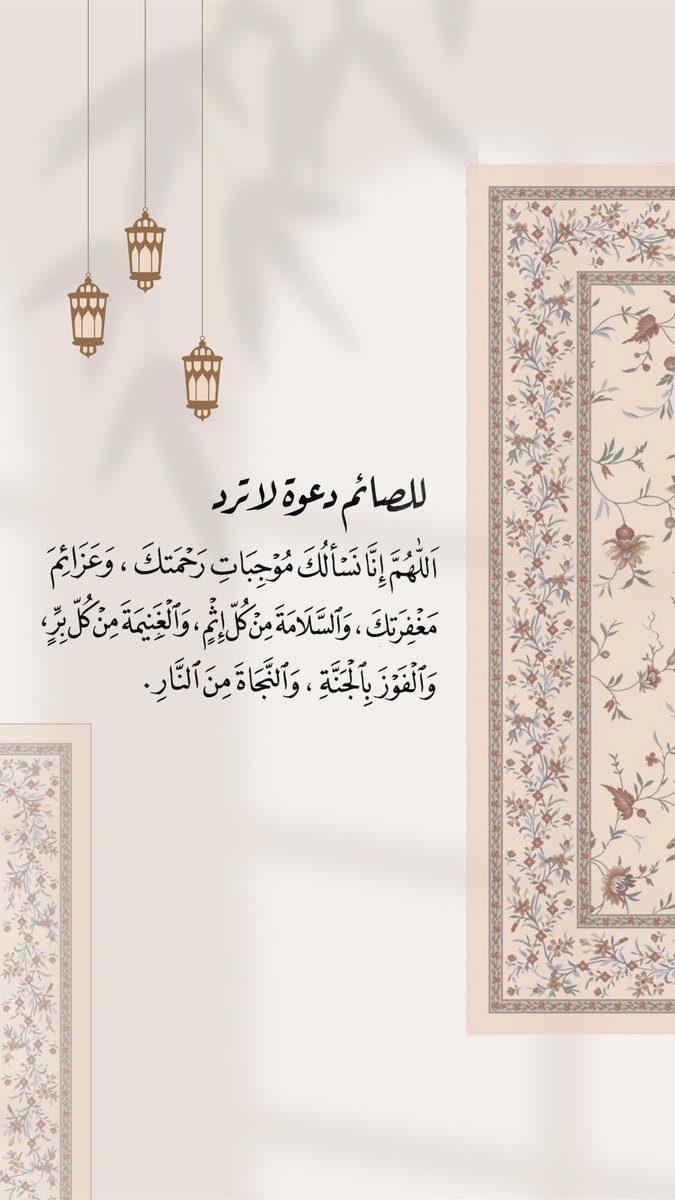 للصائم دعوة لا ترد
اَللّٰهُمَّ إِنَّا نَسْأَلُكَ مُوْجِبَاتِ رَحْمَتكَ ، وَعَزَائِمَ
مَغْفِرَتكَ ، وَٱلسَّلَامَةَ مِنْ كُلّ إِثْمٍ، وَٱلْغَنِيمَةَ مِنْ كُلّ بِرٍّ،
وَٱلْفَوْزَ بِٱلْجَنَّةِ ، وَٱلنَّجَاةَ مِنَ ٱلنَّارِ .